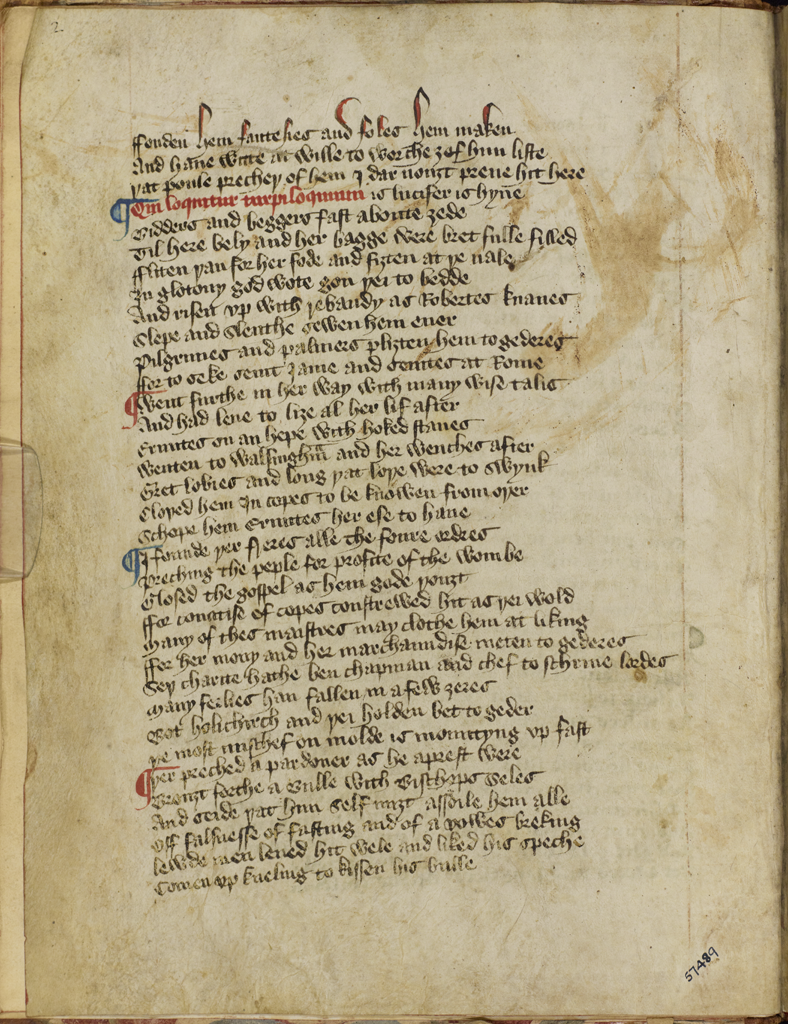 2
ffonden hem fantesies and foles hem maken
And haue witte at wille to worche ȝef hem liste
þat poule precheþ of hem I dar nouȝt preue hit here
Qui loquitur turpiloquium is lucifer is hyne
Bidders and beggers fast aboute ȝede
Til here bely and her bagge were bret fulle filled
ffliten þan for her fode and fiȝten at þe nale
In glotony god wote gon þei to bedde
And risen vp with rebaudy as Robertes knaues
Slepe and slenthe sewen hem euer
Pilgrimes and palmers pliȝten hem to gederes
ffor to seke seint Jame and seintes at Rome
Went furthe in her way with many wise talis
And had leue to liȝe al her lif after
Ermites on an hepe with hoked staues
Wenten to walsinghm̄ and her wenches after
Gret lobies and long þat loþe were to swynk
Cloþed hem In copes to be knowen from oþer
Schope hem Ermites her ese to haue
I founde þer freres alle the foure ordres
Preching the peple for profite of the wombe
Glosed the gospel as hem gode þouȝt
ffor couatise of copes construwed hit as þei wold
Many of thes maistres may clothe hem at liking
ffor her mony and her marchaundise meten to gederes
Seþ charite hathe ben chapman and chef to schriue lordes
Many ferlies han fallen in a few ȝeres
Bot holichirch and þei holden bet to geder
þe most mischef on molde is mountyng vp fast
þer preched a pardoner as he a prest were
Brouȝt forthe a Bulle with Bisschops seles
And seide þat him self miȝt assoile hem alle
Off falsnesse of fasting and of a vowes breking
lewde men leued hit wele and liked his speche
Comen vp kneling to kissen his bulle
57489